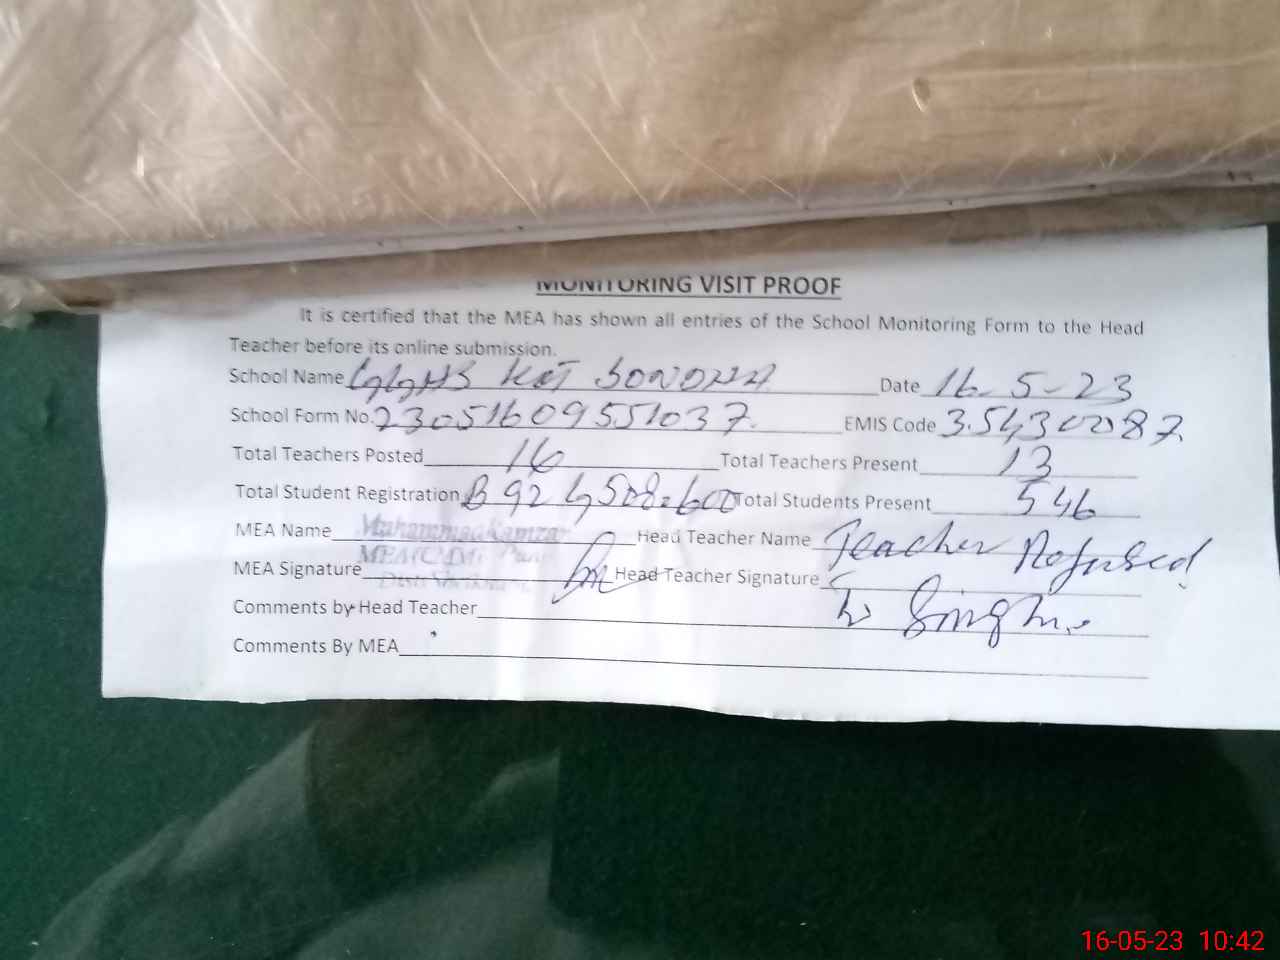 MONITORING VISIT PROOF
It is certified that the MEA has shown all entries of the School Monitoring Form to the Head
Teacher before its online submission.
School Name GGHS KOT SONDHA Date 16-5-23
School Form No. 23051609551037. EMIS Code 35430087
Total Teachers Posted 16 Total Teachers Present 13
Total Student Registration B 92 G 508=600 Total Students Present 546
MEA Name Muhammad Head Teacher Name Teacher Refused
MEA Signature Head Teacher Signature
Comments by Head Teacher to Singh.
Comments By MEA
16-05-23 10:42